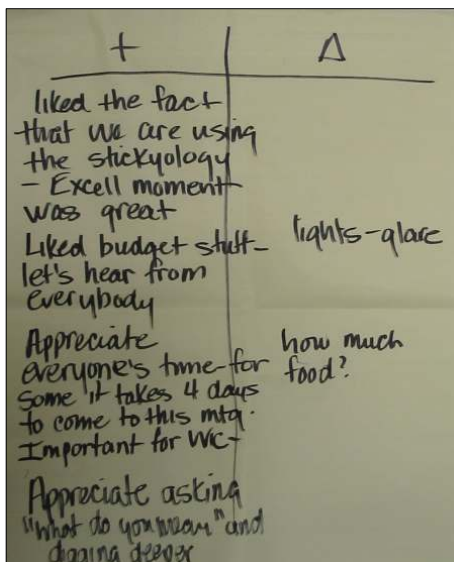 + Δ
liked the fact
that we are using
the stickyology
- Excell moment
was great
Liked budget stuff-
let's hear from
everybody
Appreciate
everyone's time-for
some it takes 4 days
to come to this mtg.
Important for WC-
Appreciate asking
"what do you mean" and
digging deeper
lights-glare
how much
food?